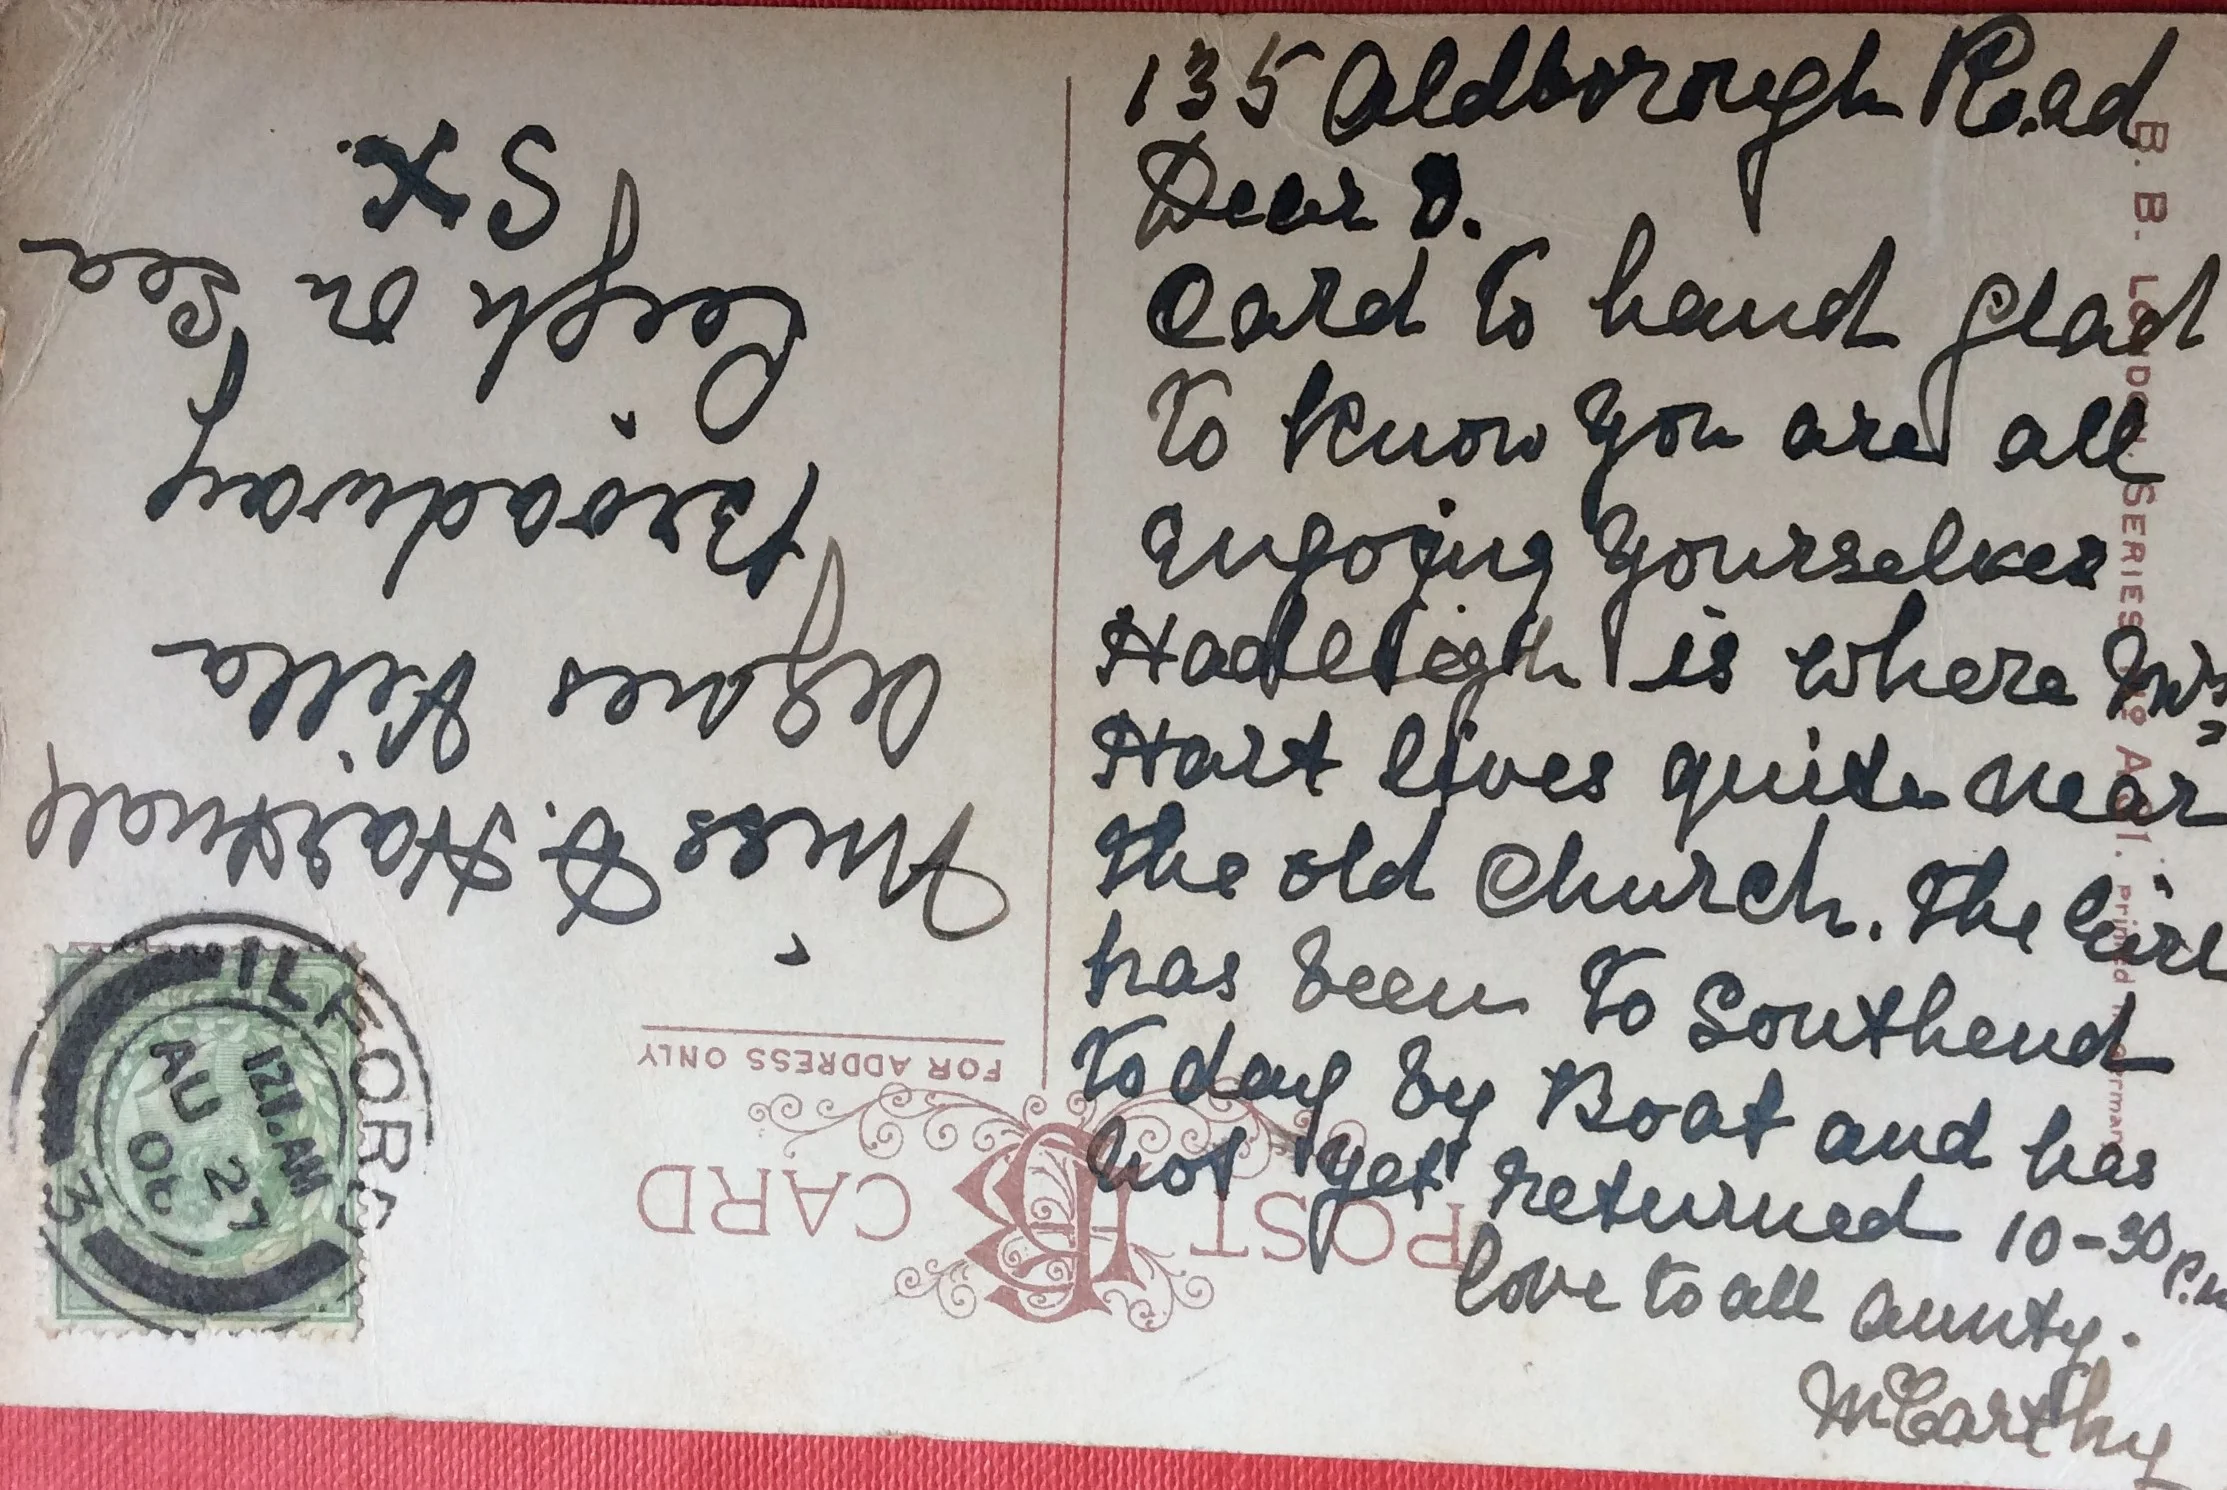 135 Aldborough Road
Dear D.
Card to hand glad
to know you are all
engoying yourselves
Hadleigh is where Mrs
Hart lives quite near
the old Church. The
has been to Southend
today by Boat and has
not yet returned 10-30 p.m
love to all aunty.
McCarthy
POST CARD
FOR ADDRESS ONLY
Miss D. Hartnall
Agnes Villa
Broadway
Leigh on Sea
SX.
ILFORD
12 1. AM
AU 27
06
3
B. B. LONDON SERIES No A 61. Printed Germany